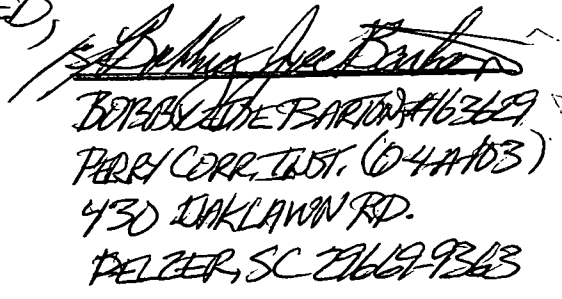 ED,
/s/ Bobby Joe Barton
BOBBY JOE BARTON, #163629
PERRY CORR. INST. (Q4A103)
430 OAKLAWN RD.
PELZER, SC 29669-9363